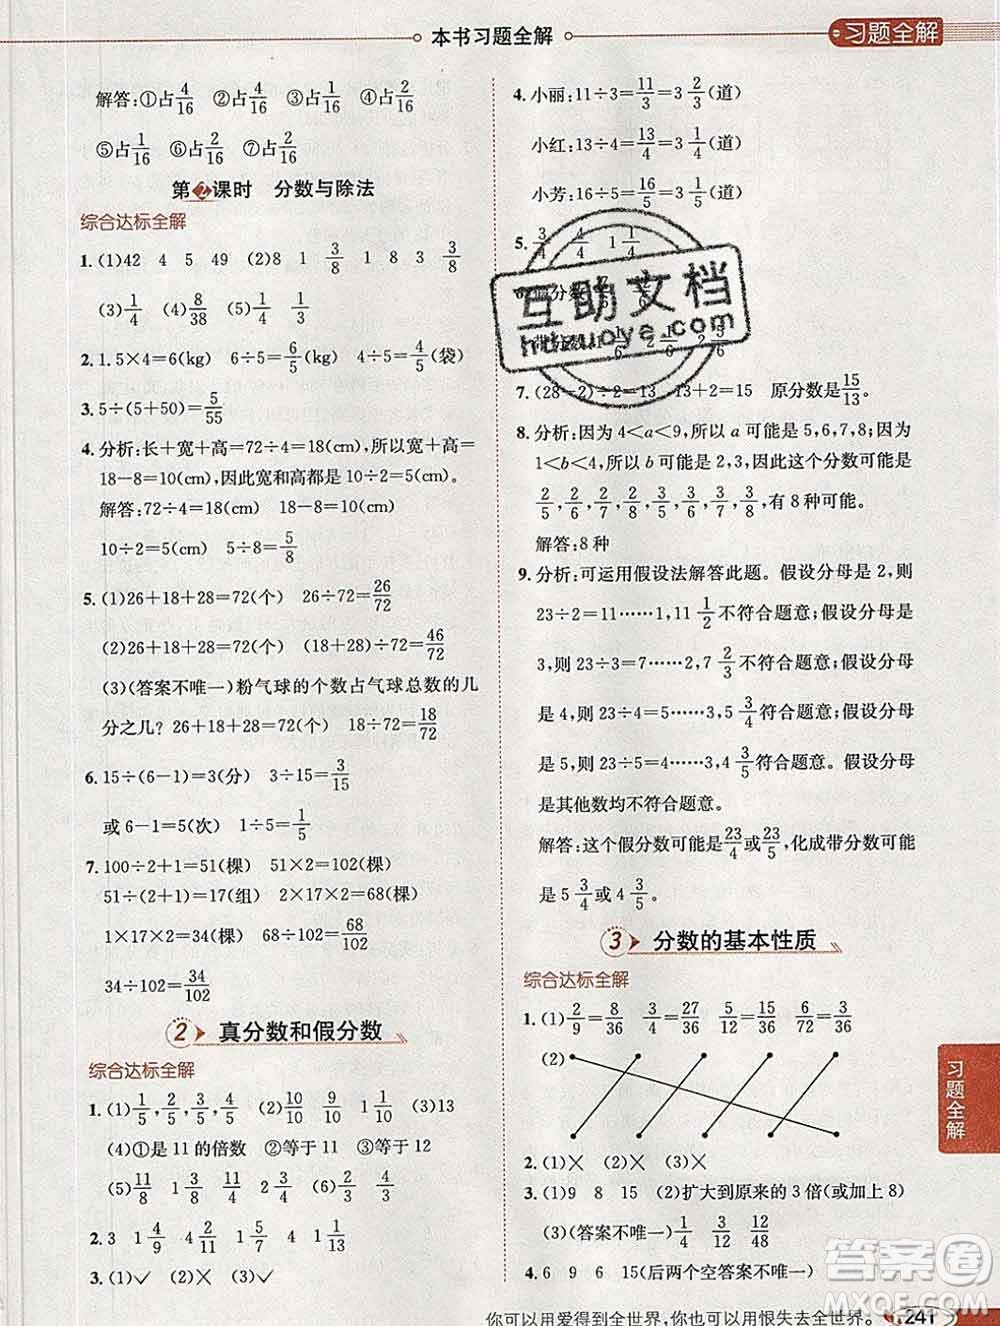 本书习题全解
习题全解
解答:①占4/16 ②占2/16 ③占2/16 ④占4/16
⑤占1/16 ⑥占2/16 ⑦占1/16
第2课时 分数与除法
综合达标全解
1.(1)42 4 5 49 (2)8 1 3/8 1 8 3 3/8
(3)1/4 (4)8/38 9/38
2.1.5×4=6(kg) 6÷5=6/5(kg) 4÷5=4/5(袋)
3.5÷(5+50)=5/55
4.分析:长+宽+高=72÷4=18(cm),所以宽+高=
18-8=10(cm),因此宽和高都是10÷2=5(cm)。
解答:72÷4=18(cm) 18-8=10(cm)
10÷2=5(cm) 5÷8=5/8
5.(1)26+18+28=72(个) 26÷72=26/72
(2)26+18+28=72(个) (18+28)÷72=46/72
(3)(答案不唯一)粉气球的个数占气球总数的几
分之几?26+18+28=72(个) 18÷72=18/72
6.15÷(6-1)=3(分) 3÷15=3/15
或6-1=5(次) 1÷5=1/5
7.100÷2+1=51(棵) 51×2=102(棵)
51÷(2+1)=17(组) 2×17×2=68(棵)
1×17×2=34(棵) 68÷102=68/102
34÷102=34/102
2 真分数和假分数
综合达标全解
1.(1)1/5,2/5,3/5,4/5 (2)10/10 9/10 1 1/10 (3)13
(4)①是11的倍数 ②等于11 ③等于12
(5)11/8 1 3/8 5/4 1 1/4 (6)2/3 4/3
2.3 1 4/9 2/9 1 5/7 2
3.(1)✓ (2)× (3)✓
4.小丽:11÷3=11/3=3 2/3(道)
小红:13÷4=13/4=3 1/4(道)
小芳:16÷5=16/5=3 1/5(道)
5.3/4 4/4 1 1/4
7.(28-2)÷2=13 13+2=15 原分数是15/13。
8.分析:因为4<a<9,所以a可能是5,6,7,8;因为
1<b<4,所以b可能是2,3,因此这个分数可能是
2/5,2/6,2/7,2/8,3/5,3/6,3/7,3/8,有8种可能。
解答:8种
9.分析:可运用假设法解答此题。假设分母是2,则
23÷2=11……1,11 1/2不符合题意;假设分母是
3,则23÷3=7……2,7 2/3不符合题意;假设分母
是4,则23÷4=5……3,5 3/4符合题意;假设分母
是5,则23÷5=4……3,4 3/5符合题意。假设分母
是其他数均不符合题意。
解答:这个假分数可能是23/4或23/5,化成带分数可能
是5 3/4或4 3/5。
3 分数的基本性质
综合达标全解
1.(1)2/9=8/36 3/4=27/36 5/12=15/36 6/72=3/36
(2)
2.(1)× (2)×
3.(1)9 8 15 (2)扩大到原来的3倍(或加上8)
(3)(答案不唯一)1/4 3/12 12/48
4.6 9 6 15(后两个空答案不唯一)
习题全解
你可以用爱得到全世界,你也可以用恨失去全世界。
241
互助文档
hdzuoye.com
答案圈
MXQE.COM